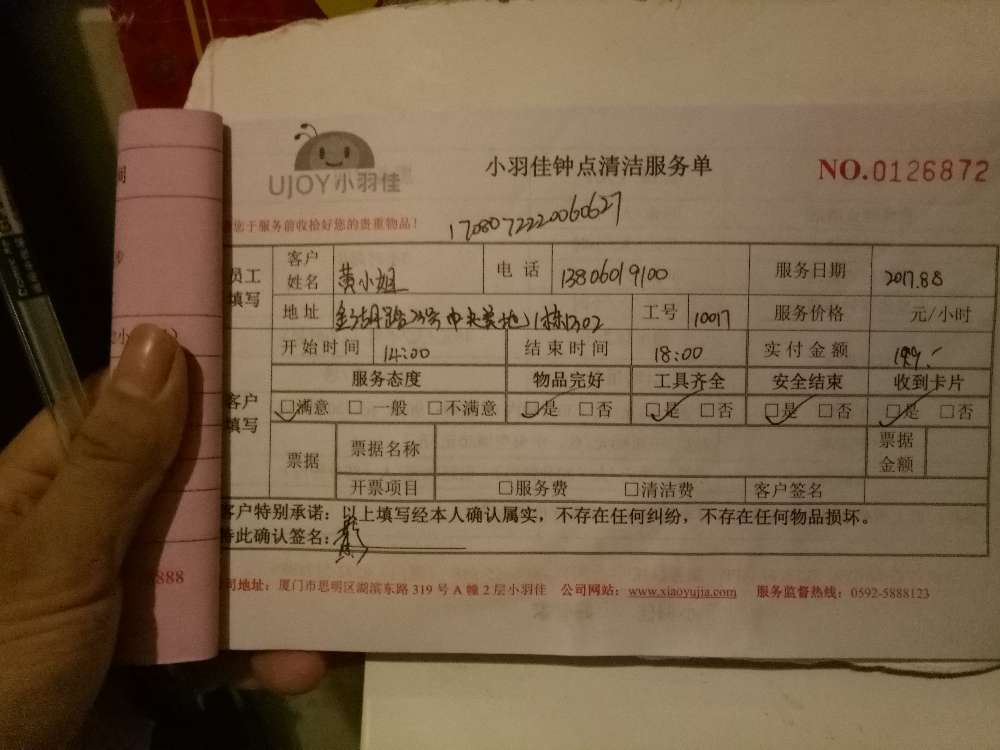 UJOY小羽佳
小羽佳钟点清洁服务单
NO.0126872
您于服务前收拾好您的贵重物品!
1708072220060627
员工填写
客户姓名 黄小姐 电话 13806019100 服务日期 2017.8.8
地址 号中央美地1栋1302 工号 10017 服务价格 元/小时
开始时间 14:00 结束时间 18:00 实付金额 199.
客户填写
服务态度 物品完好 工具齐全 安全结束 收到卡片
☑满意 □一般 □不满意 ☑是 □否 ☑是 □否 ☑是 □否 ☑是 □否
票据 票据名称 票据金额
开票项目 □服务费 □清洁费 客户签名
客户特别承诺:以上填写经本人确认属实,不存在任何纠纷,不存在任何物品损坏。
特此确认签名:
司地址:厦门市思明区湖滨东路 319 号 A 幢 2 层小羽佳 公司网站:www.xiaoyujia.com 服务监督热线:0592-5888123
888